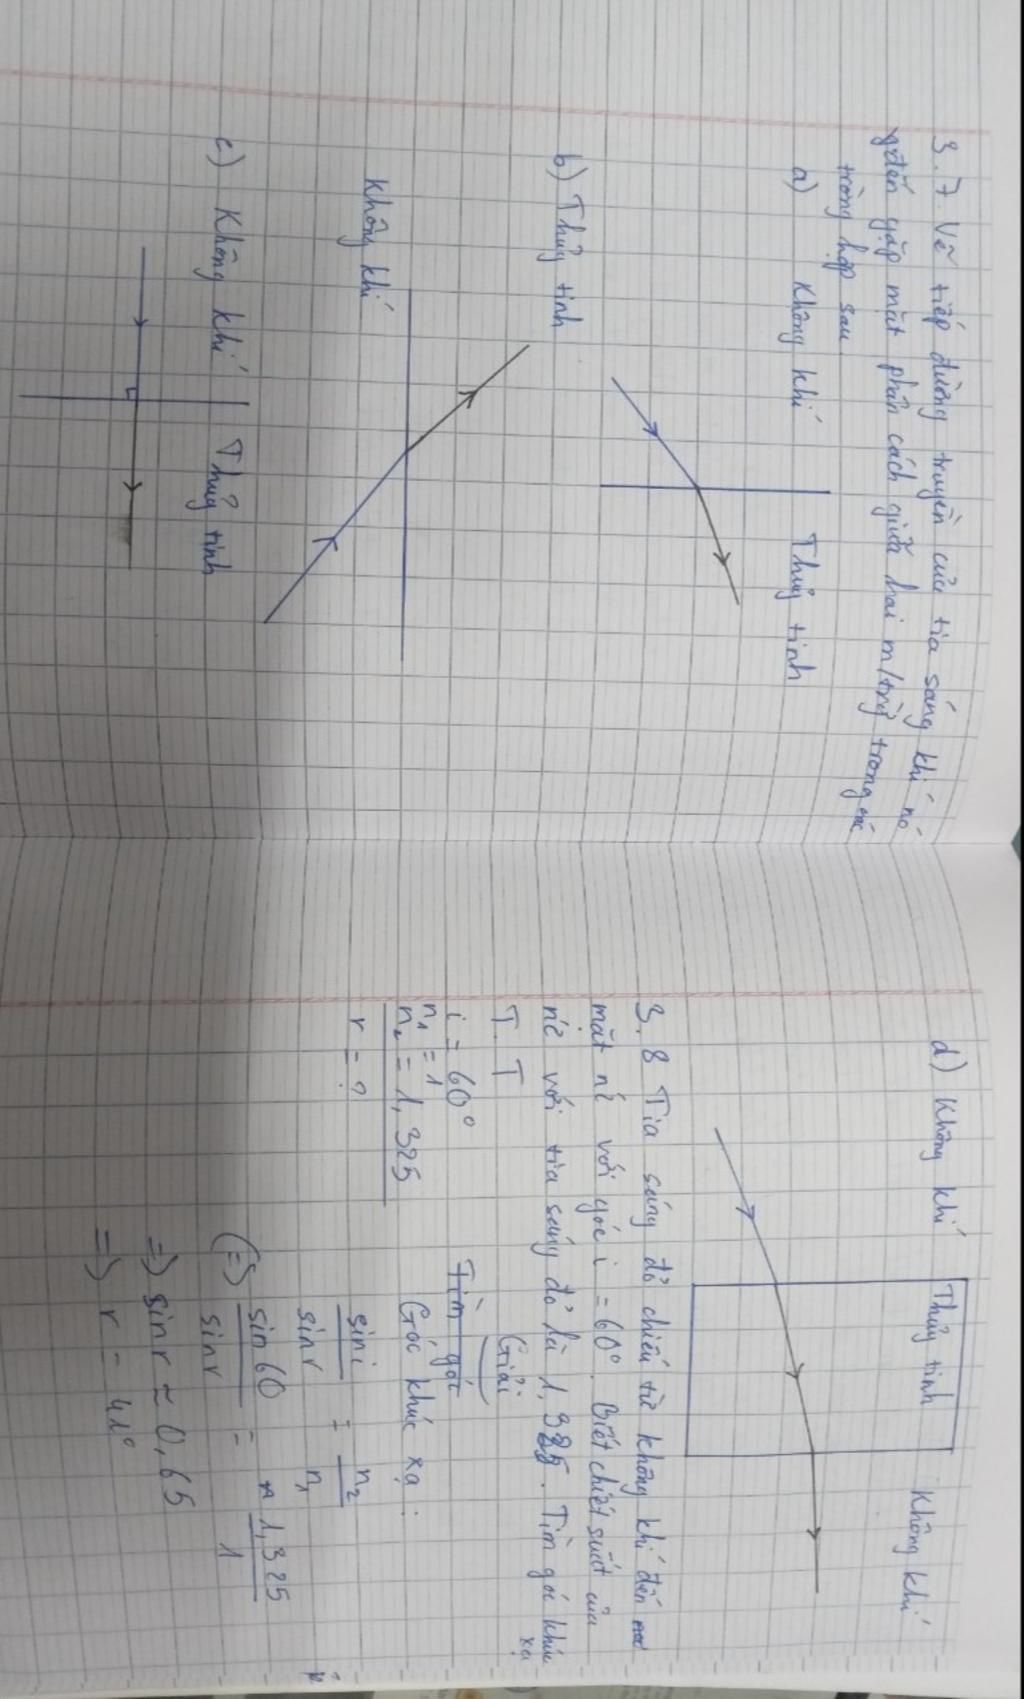 3.7 Vẽ tiếp đường truyền của tia sáng khi nó
gặp mặt phân cách giữa hai m/trg trong các
trường hợp sau
a) Không khí Thuỷ tinh
b) Thuỷ tinh
Không khí
c) Không khí Thuỷ tinh
d) Không khí Thuỷ tinh Không khí
3.8 Tia sáng đỏ chiếu từ không khí đến
mặt nc với góc i = 60°. Biết chiết suất của
nc với tia sáng đỏ là 1,325. Tìm góc khúc
xạ
T.T
i = 60°
n₁ = 1
n₂ = 1,325
r = ?
Giải
Tìm góc
Góc khúc xạ:
sin i / sin r = n₂ / n₁
(=) sin 60 / sin r = 1,325 / 1
=) sin r ≈ 0,65
=) r = 41°